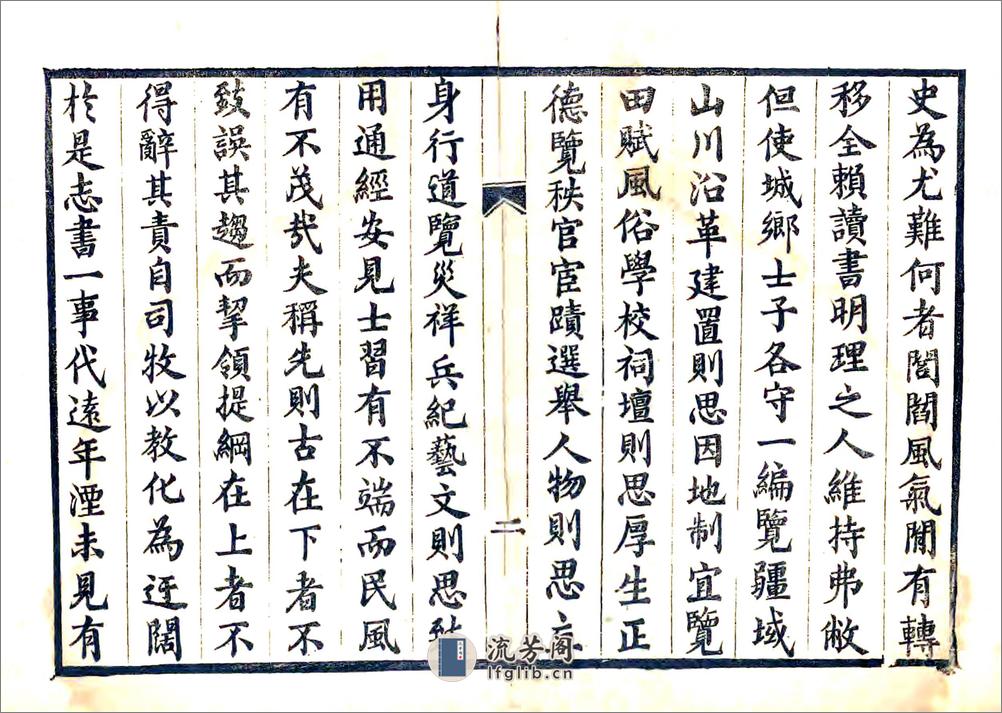 史為尤難何者閭閻風氣閒有轉
移全賴讀書明理之人維持弗敝
但使城鄉士子各守一編覽疆域
山川沿革建置則思因地制宜覽
田賦風俗學校祠壇則思厚生正
德覽秩官宦蹟選舉人物則思立
二
身行道覽災祥兵紀藝文則思致
用通經安見士習有不端而民風
有不茂哉夫稱先則古在下者不
致誤其趨而挈領提綱在上者不
得辭其責自司牧以教化為迂闊
於是志書一事代遠年湮未見有
流芳阁
lfglib.cn